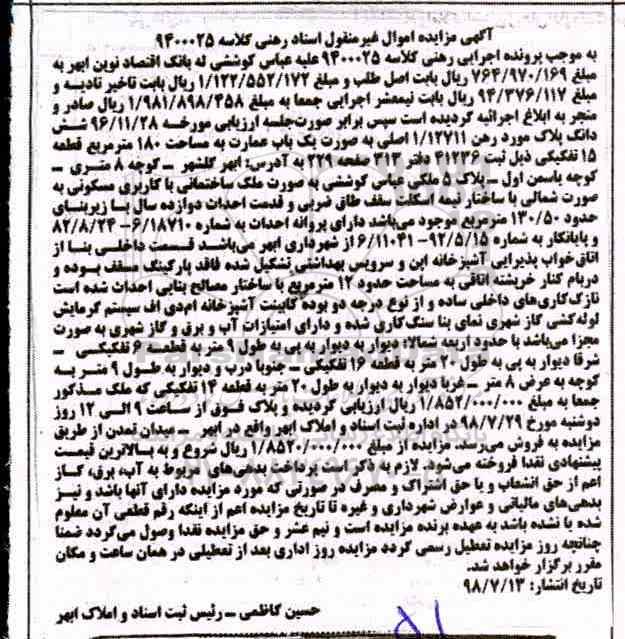 آگهی مزایده اموال غیرمنقول اسناد رهنی کلاسه ۹۴۰۰۰۲۵
به موجب پرونده اجرایی رهنی کلاسه ۹۴۰۰۰۲۵ علیه عباس کوششی له بانک اقتصاد نوین ابهر به
مبلغ ۷۶۴/۹۷۰/۱۶۹ ریال بابت اصل طلب و مبلغ ۱/۱۲۲/۵۵۲/۱۷۲ ریال بابت تاخیر تادیه و
مبلغ ۹۴/۳۷۶/۱۱۷ ریال بابت نیمعشر اجرایی جمعا به مبلغ ۱/۹۸۱/۸۹۸/۴۵۸ ریال صادر و
منجر به ابلاغ اجرائیه گردیده است سپس برابر صورت‌جلسه ارزیابی مورخه ۹۶/۱۱/۲۸ شش
دانگ پلاک مورد رهن ۱/۱۲۷۱۱ اصلی به صورت یک باب عمارت به مساحت ۱۸۰ مترمربع قطعه
۱۵ تفکیکی ذیل ثبت ۴۱۲۳۶ دفتر ۳۱۳ صفحه ۲۲۹ به آدرس: ابهر گلشهر ــ کوچه ۸ متری ــ
کوچه یاسمن اول ــ پلاک ۵ ملکی عباس کوششی به صورت ملک ساختمانی با کاربری مسکونی به
صورت شمالی با ساختار نیمه اسکلت سقف طاق ضربی و قدمت احداث دوازده سال با زیربنای
حدود ۱۳۰/۵۰ مترمربع موجود می‌باشد دارای پروانه احداث به شماره ۶/۱۸۷۱۰– ۸۲/۸/۲۴
و پایانکار به شماره ۹۲/۵/۱۵–۶/۱۱۰۴۱ از شهرداری ابهر می‌باشد قسمت داخلی بنا از
اتاق‌خواب پذیرایی آشپزخانه اپن و سرویس بهداشتی تشکیل شده فاقد پارکینگ مسقف بوده و
دربام کنار خرپشته اتاقی به مساحت حدود ۱۲ مترمربع با ساختار مصالح بنایی احداث شده است
نازک‌کاری‌های داخلی ساده و از نوع درجه دو بوده کابینت آشپزخانه ام‌دی اف سیستم گرمایش
لوله‌کشی گاز شهری نمای بنا سنگ‌کاری شده و دارای امتیازات آب و برق و گاز شهری به صورت
مجزا می‌باشد با حدود اربعه شمالا: دیوار به دیوار به پی به طول ۹ متر به قطعه ۶ تفکیکی ــ
شرقا دیوار به پی به طول ۲۰ متر به قطعه ۱۶ تفکیکی ــ جنوبا درب و دیوار به طول ۹ متر به
کوچه به عرض ۸ متر ــ غربا دیوار به دیوار به طول ۲۰ متر به قطعه ۱۴ تفکیکی که ملک مذکور
جمعا به مبلغ ۱/۸۵۲/۰۰۰/۰۰۰ ریال ارزیابی گردیده و پلاک فوق از ساعت ۹ الی ۱۲ روز
دوشنبه مورخ ۹۸/۷/۲۹ در اداره ثبت اسناد و املاک ابهر واقع در ابهر ــ میدان تمدن از طریق
مزایده به فروش می‌رسد. مزایده از مبلغ ۱/۸۵۲۰/۰۰۰/۰۰۰ ریال شروع و به بالاترین قیمت
پیشنهادی نقدا فروخته می‌شود. لازم به ذکر است پرداخت بدهی‌های مربوط به آب، برق، گاز
اعم از حق انشعاب و یا حق اشتراک و مصرف در صورتی که مورد مزایده دارای آنها باشد و نیز
بدهی‌های مالیاتی و عوارض شهرداری و غیره تا تاریخ مزایده اعم از اینکه رقم قطعی آن معلوم
شده یا نشده باشد به عهده برنده مزایده است و نیم عشر و حق مزایده نقدا وصول می‌گردد ضمنا
چنانچه روز مزایده تعطیل رسمی گردد مزایده روز اداری بعد از تعطیلی در همان ساعت و مکان
مقرر برگزار خواهد شد.
تاریخ انتشار: ۹۸/۷/۱۳
حسین کاظمی ــ رئیس ثبت اسناد و املاک ابهر